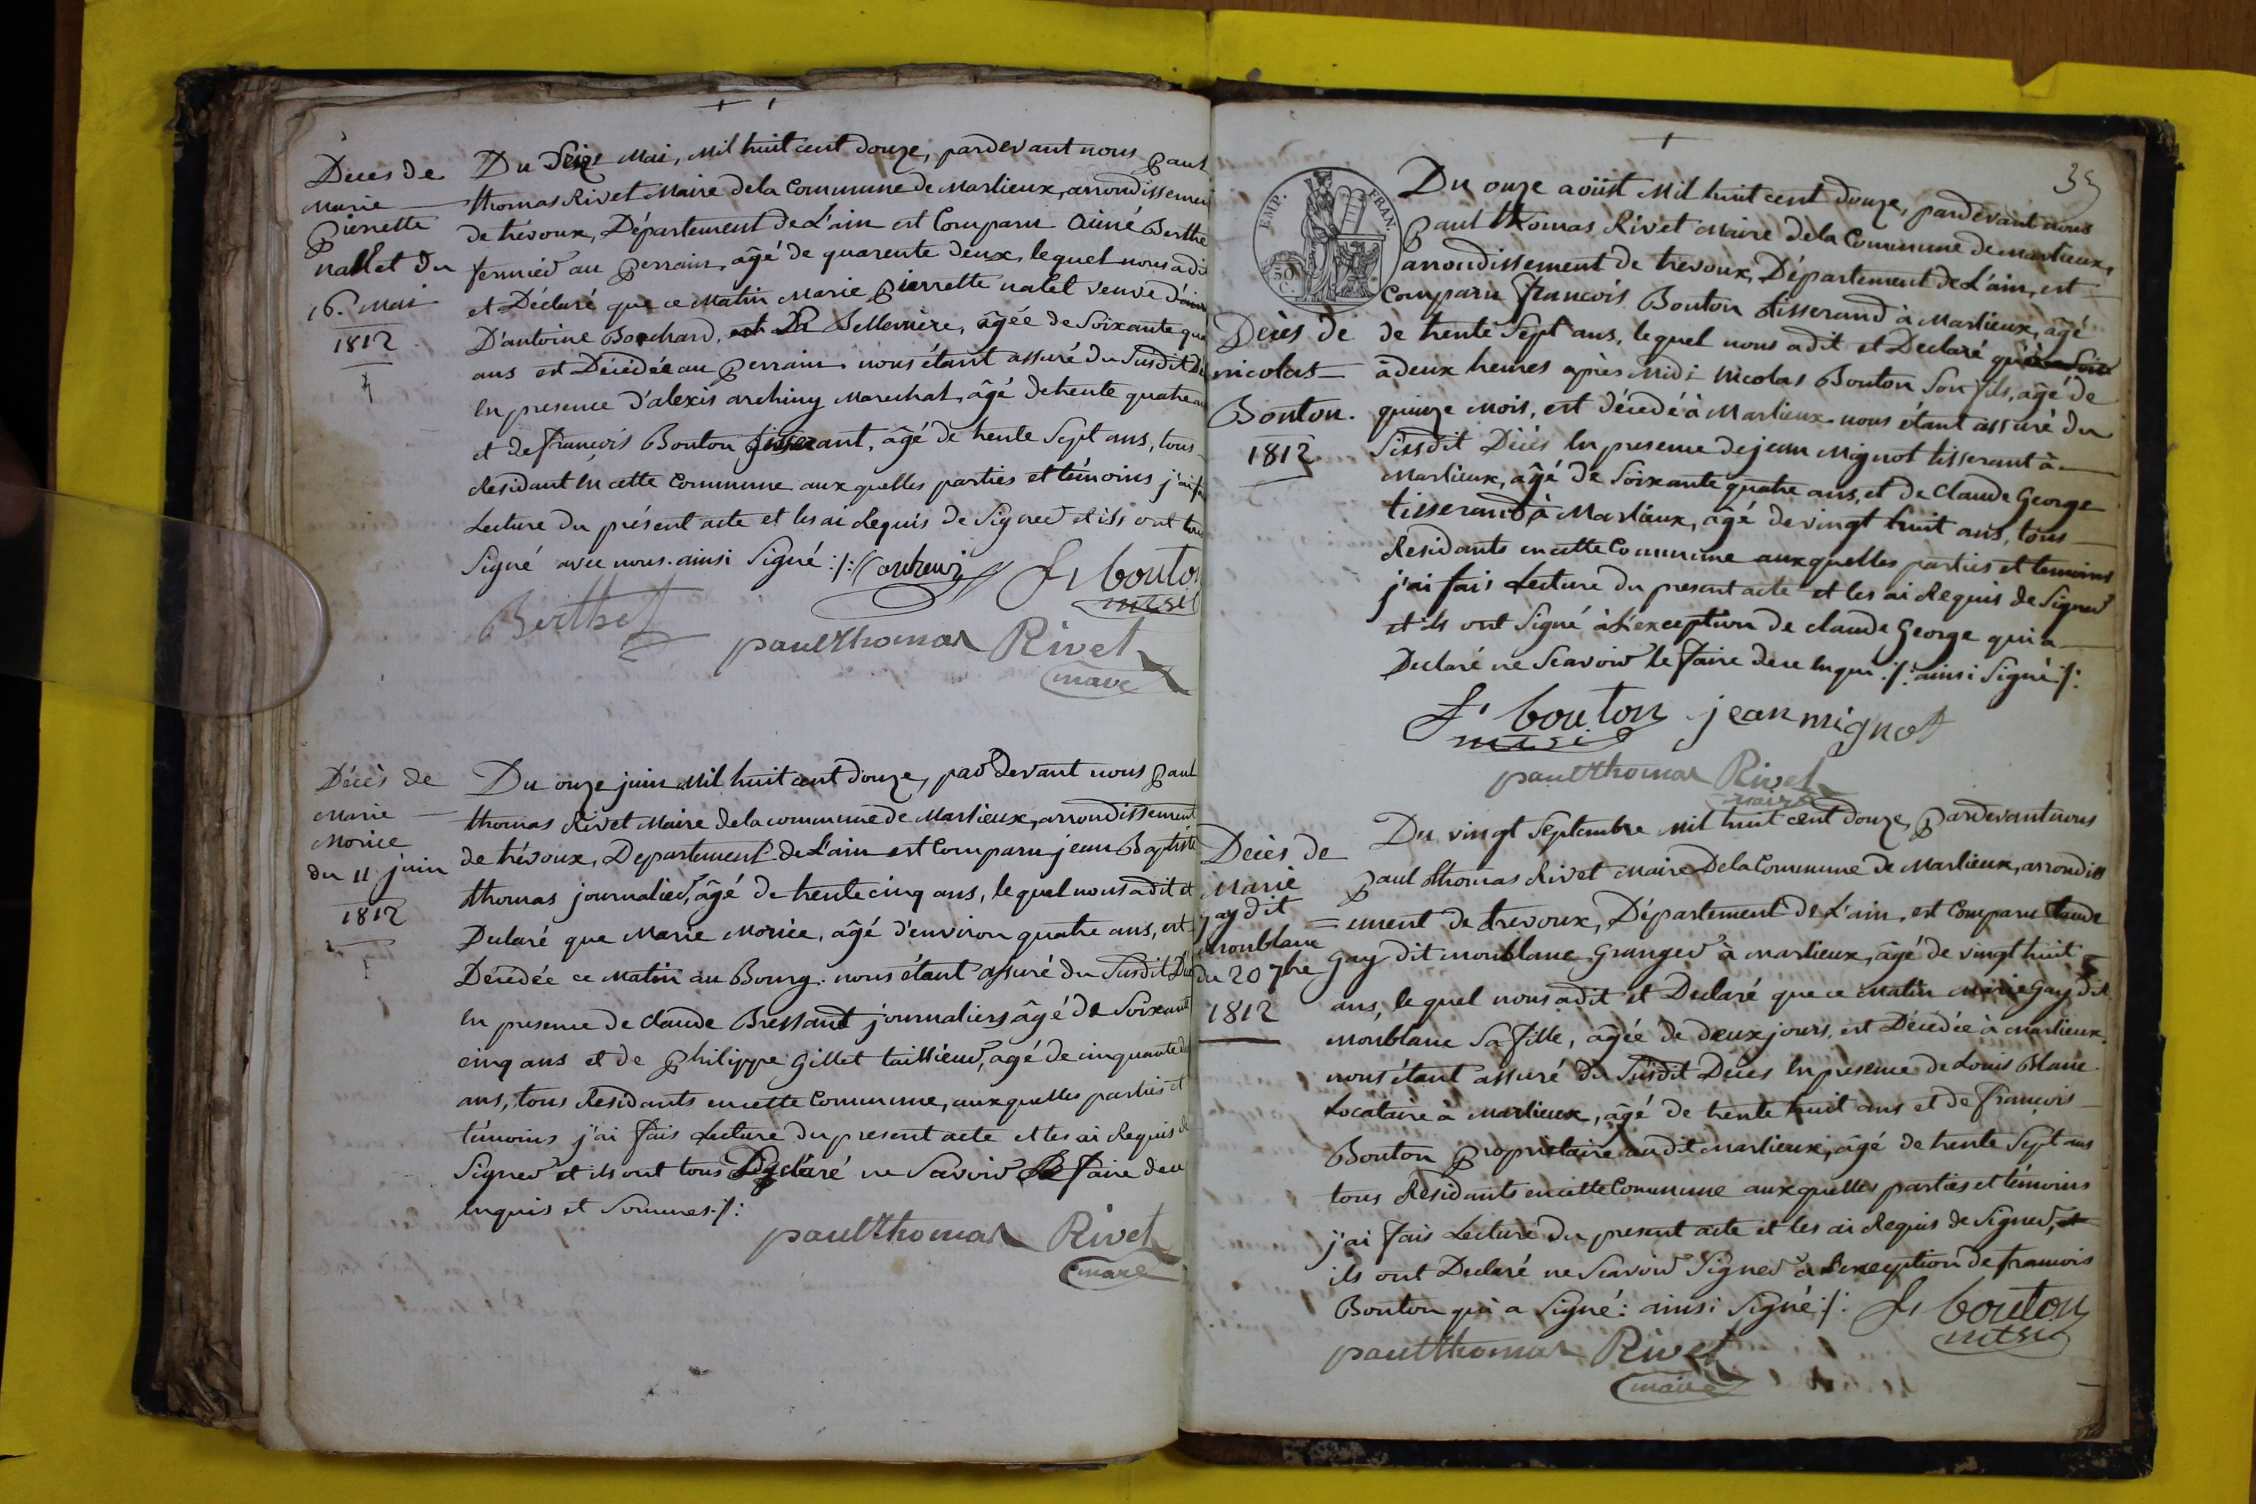 Décès de
Marie
Pierrette
nallet du
16. Mai
1812
Du Seize Mai, Mil huit cent douze, pardevant nous Paul
thomas Rivet Maire dela Commune de Marlieux, arrondissement
de trévoux, Département de L'ain est Comparu Aimé Berthe
fermier au Perrain, âgé de quarente deux, lequel nous a dit
et Déclaré que ce Matin Marie Pierrette nalet veuve
D'antoine Borchard, âgée de Soixante
ans est Décédée au Perrain nous étant assuré du Susdit
En presence d'alexis archiny Marechal, âgé de trente quatre ans
et de françois Bouton tisserant, âgé de trente Sept ans, tous
Residant En cette Commune aux quelles parties et témoins j'ai
Lecture du présent acte et les ai Requis de Signer et ils ont
Signé avec nous. ainsi Signé :/:
fs bouton
Berthet
paulthomas Rivet
maire
Décès de
Marie
Morice
du 11 juin
1812
Du onze juin Mil huit cent douze, par devant nous Paul
thomas Rivet Maire dela commune de Marlieux, arrondissement
de trévoux, Departement de L'ain est Comparu jean Baptiste
thomas journalier, âgé de trente cinq ans, le quel nous a dit et
Declaré que Marie Morice, âgé d'environ quatre ans, est
Décédée ce Matin au Bourg. nous étant assuré du Susdit
En presence de Claude Bressand journaliers âgé de Soixante
cinq ans et de Philippe Gillet taillieur, agé de cinquante
ans, tous Residants en cette Commune, aux quelles parties et
témoins j'ai fais Lecture du present acte et les ai Requis de
Signer et ils ont tous Declaré ne Savoir Le faire de ce
Enquis et Sommes :/:
paulthomas Rivet
maire
EMP. FRAN.
50 C.
35
Décès de
nicolas
Bouton.
1812
Du onze août Mil huit cent douze, pardevant nous
Paul thomas Rivet Maire dela Commune de Marlieux,
arrondissement de trevoux, Département de L'ain, est
Comparu francois Bouton tisserand à Marlieux, âgé
de trente Sept ans, lequel nous a dit et Declaré
à deux heures après Midi Nicolas Bouton Son fils, âgé de
quinze mois, est décedé à Marlieux. nous étant assuré du
Susdit Décès En presence de jean Mignot tisserant à
Marlieux, âgé de Soixante quatre ans, et de Claude George
tisserand à Marlieux, âgé de vingt huit ans, tous
Residants en cette Commune aux quelles parties et temoins
j'ai fais Lecture du present acte et les ai Requis de Signer
et ils ont Signé à L'exception de claude George qui a
Declaré ne Scavoir le faire de ce Enquis :/: ainsi Signé :/:
fs bouton jean mignot
paulthomas Rivet
maire
Décès de
Marie
gay dit
monblanc
du 20 7bre
1812
Du vingt Septembre Mil huit cent douze, Pardevant nous
Paul thomas Rivet Maire Dela Commune de Marlieux, arrondiss
= ement de trevoux, Département de L'ain, est Comparu Claude
Gay dit monblanc Granger à Marlieux, âgé de vingt huit
ans, le quel nous a dit et Declaré que ce Matin Marie Gay dit
Monblanc Sa fille, âgée de deux jours, est Décédée à Marlieux.
nous étant assuré du Susdit Deces En présence de Louis Blanc
Locataire à Marlieux, âgé de trente huit ans et de françois
Bouton Propriétaire au dit Marlieux, âgé de trente Sept ans
tous Residants en cette Commune aux quelles parties et témoins
j'ai fais Lecture du present acte et les ai Requis de Signer, et
ils ont Declaré ne Scavoir Signer à L'exception de francois
Bouton qui a Signé : ainsi Signé :/: fs bouton
paulthomas Rivet
maire